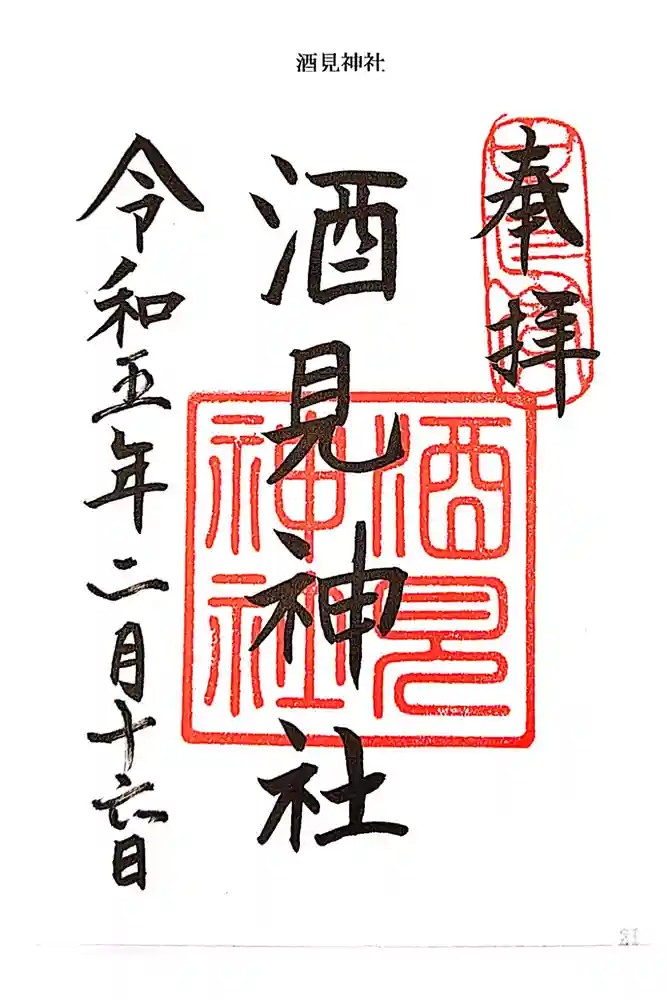 酒見神社
奉拝
酒見神社
酒見
神社
令和五年二月十六日
21